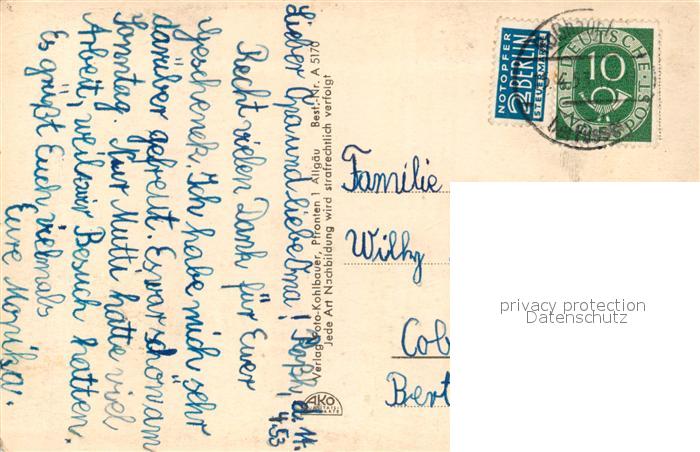 Lieber Opa und liebe Oma!
d. 11. 4.53
Recht vielen Dank für Euer
Geschenk. Ich habe mich sehr
darüber gefreut. Es war schön am
Sonntag. Nur Mutti hatte viel
Arbeit, weil wir Besuch hatten.
Es grüßt Euch vielmals
Eure Monika.
Verlag Foto-Kohlbauer, Pfronten 1 Allgäu Best.-Nr. A 5170
Jede Art Nachbildung wird strafrechtlich verfolgt
AKO
NOTOPFER
2 BERLIN
STEUERMARKE
DEUTSCHE POST
10
Familie
Willy
Cob
Bert
privacy protection
Datenschutz